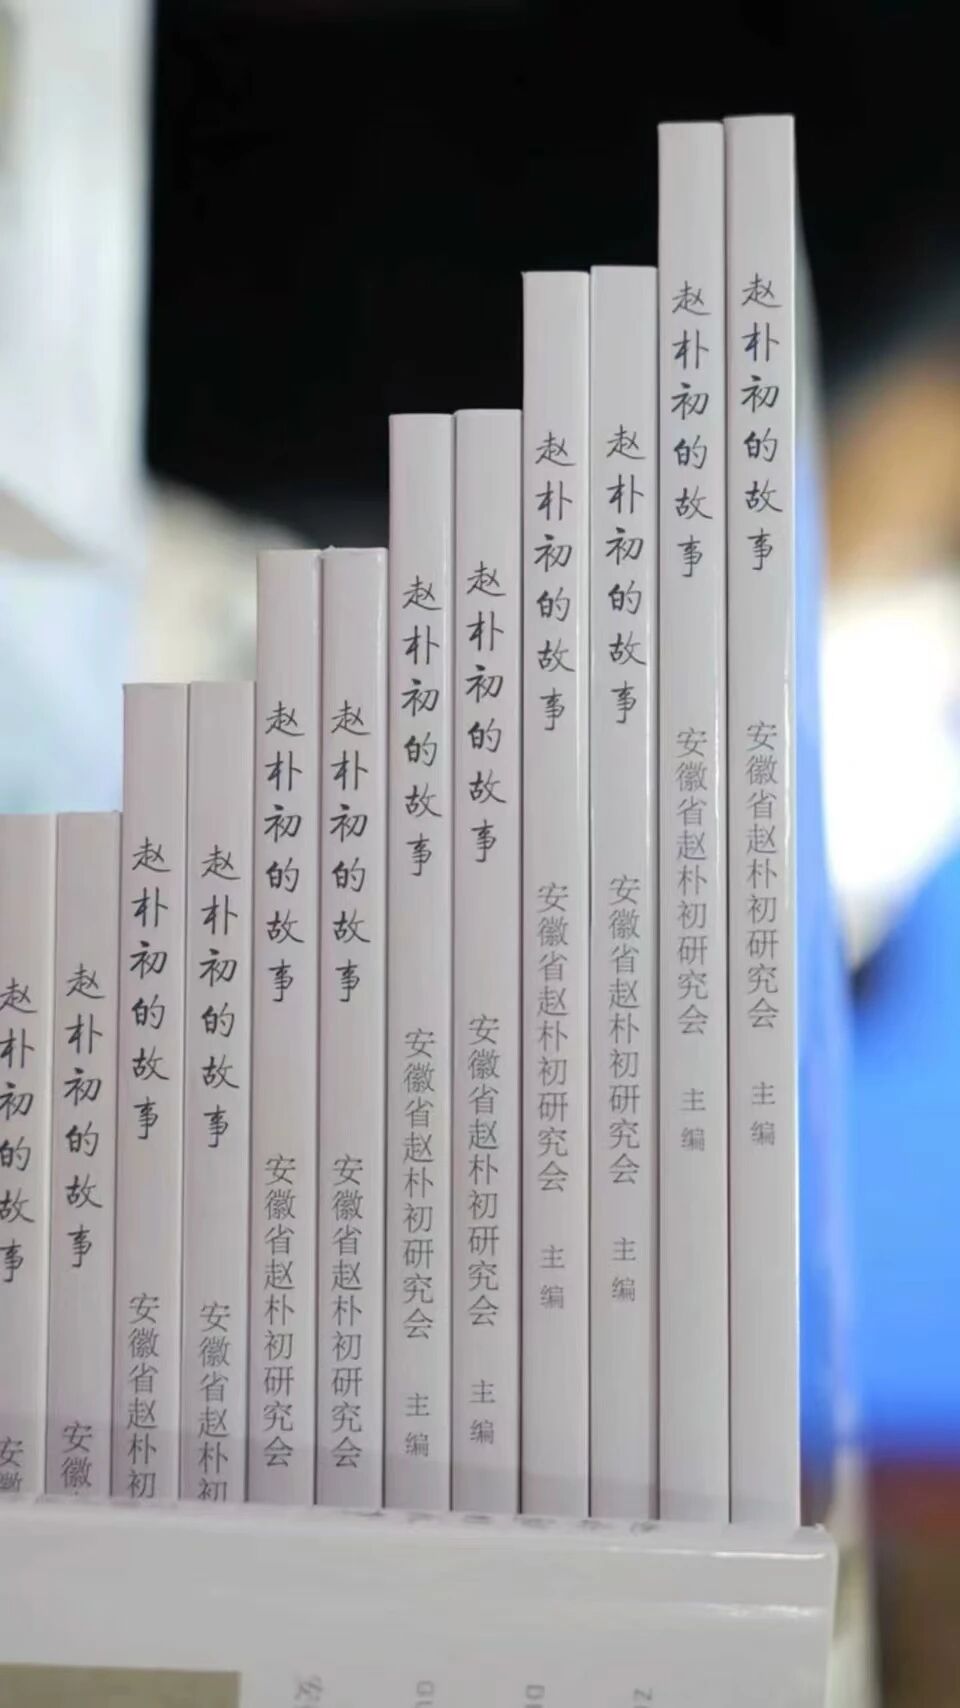 赵朴初的故事
安徽
赵朴初的故事
安徽
赵朴初的故事
安徽省赵朴初
赵朴初的故事
安徽省赵朴初
赵朴初的故事
安徽省赵朴初研究会
赵朴初的故事
安徽省赵朴初研究会
赵朴初的故事
安徽省赵朴初研究会
主编
赵朴初的故事
安徽省赵朴初研究会
主编
赵朴初的故事
安徽省赵朴初研究会
主编
赵朴初的故事
安徽省赵朴初研究会
主编
赵朴初的故事
安徽省赵朴初研究会
主编
赵朴初的故事
安徽省赵朴初研究会
主编